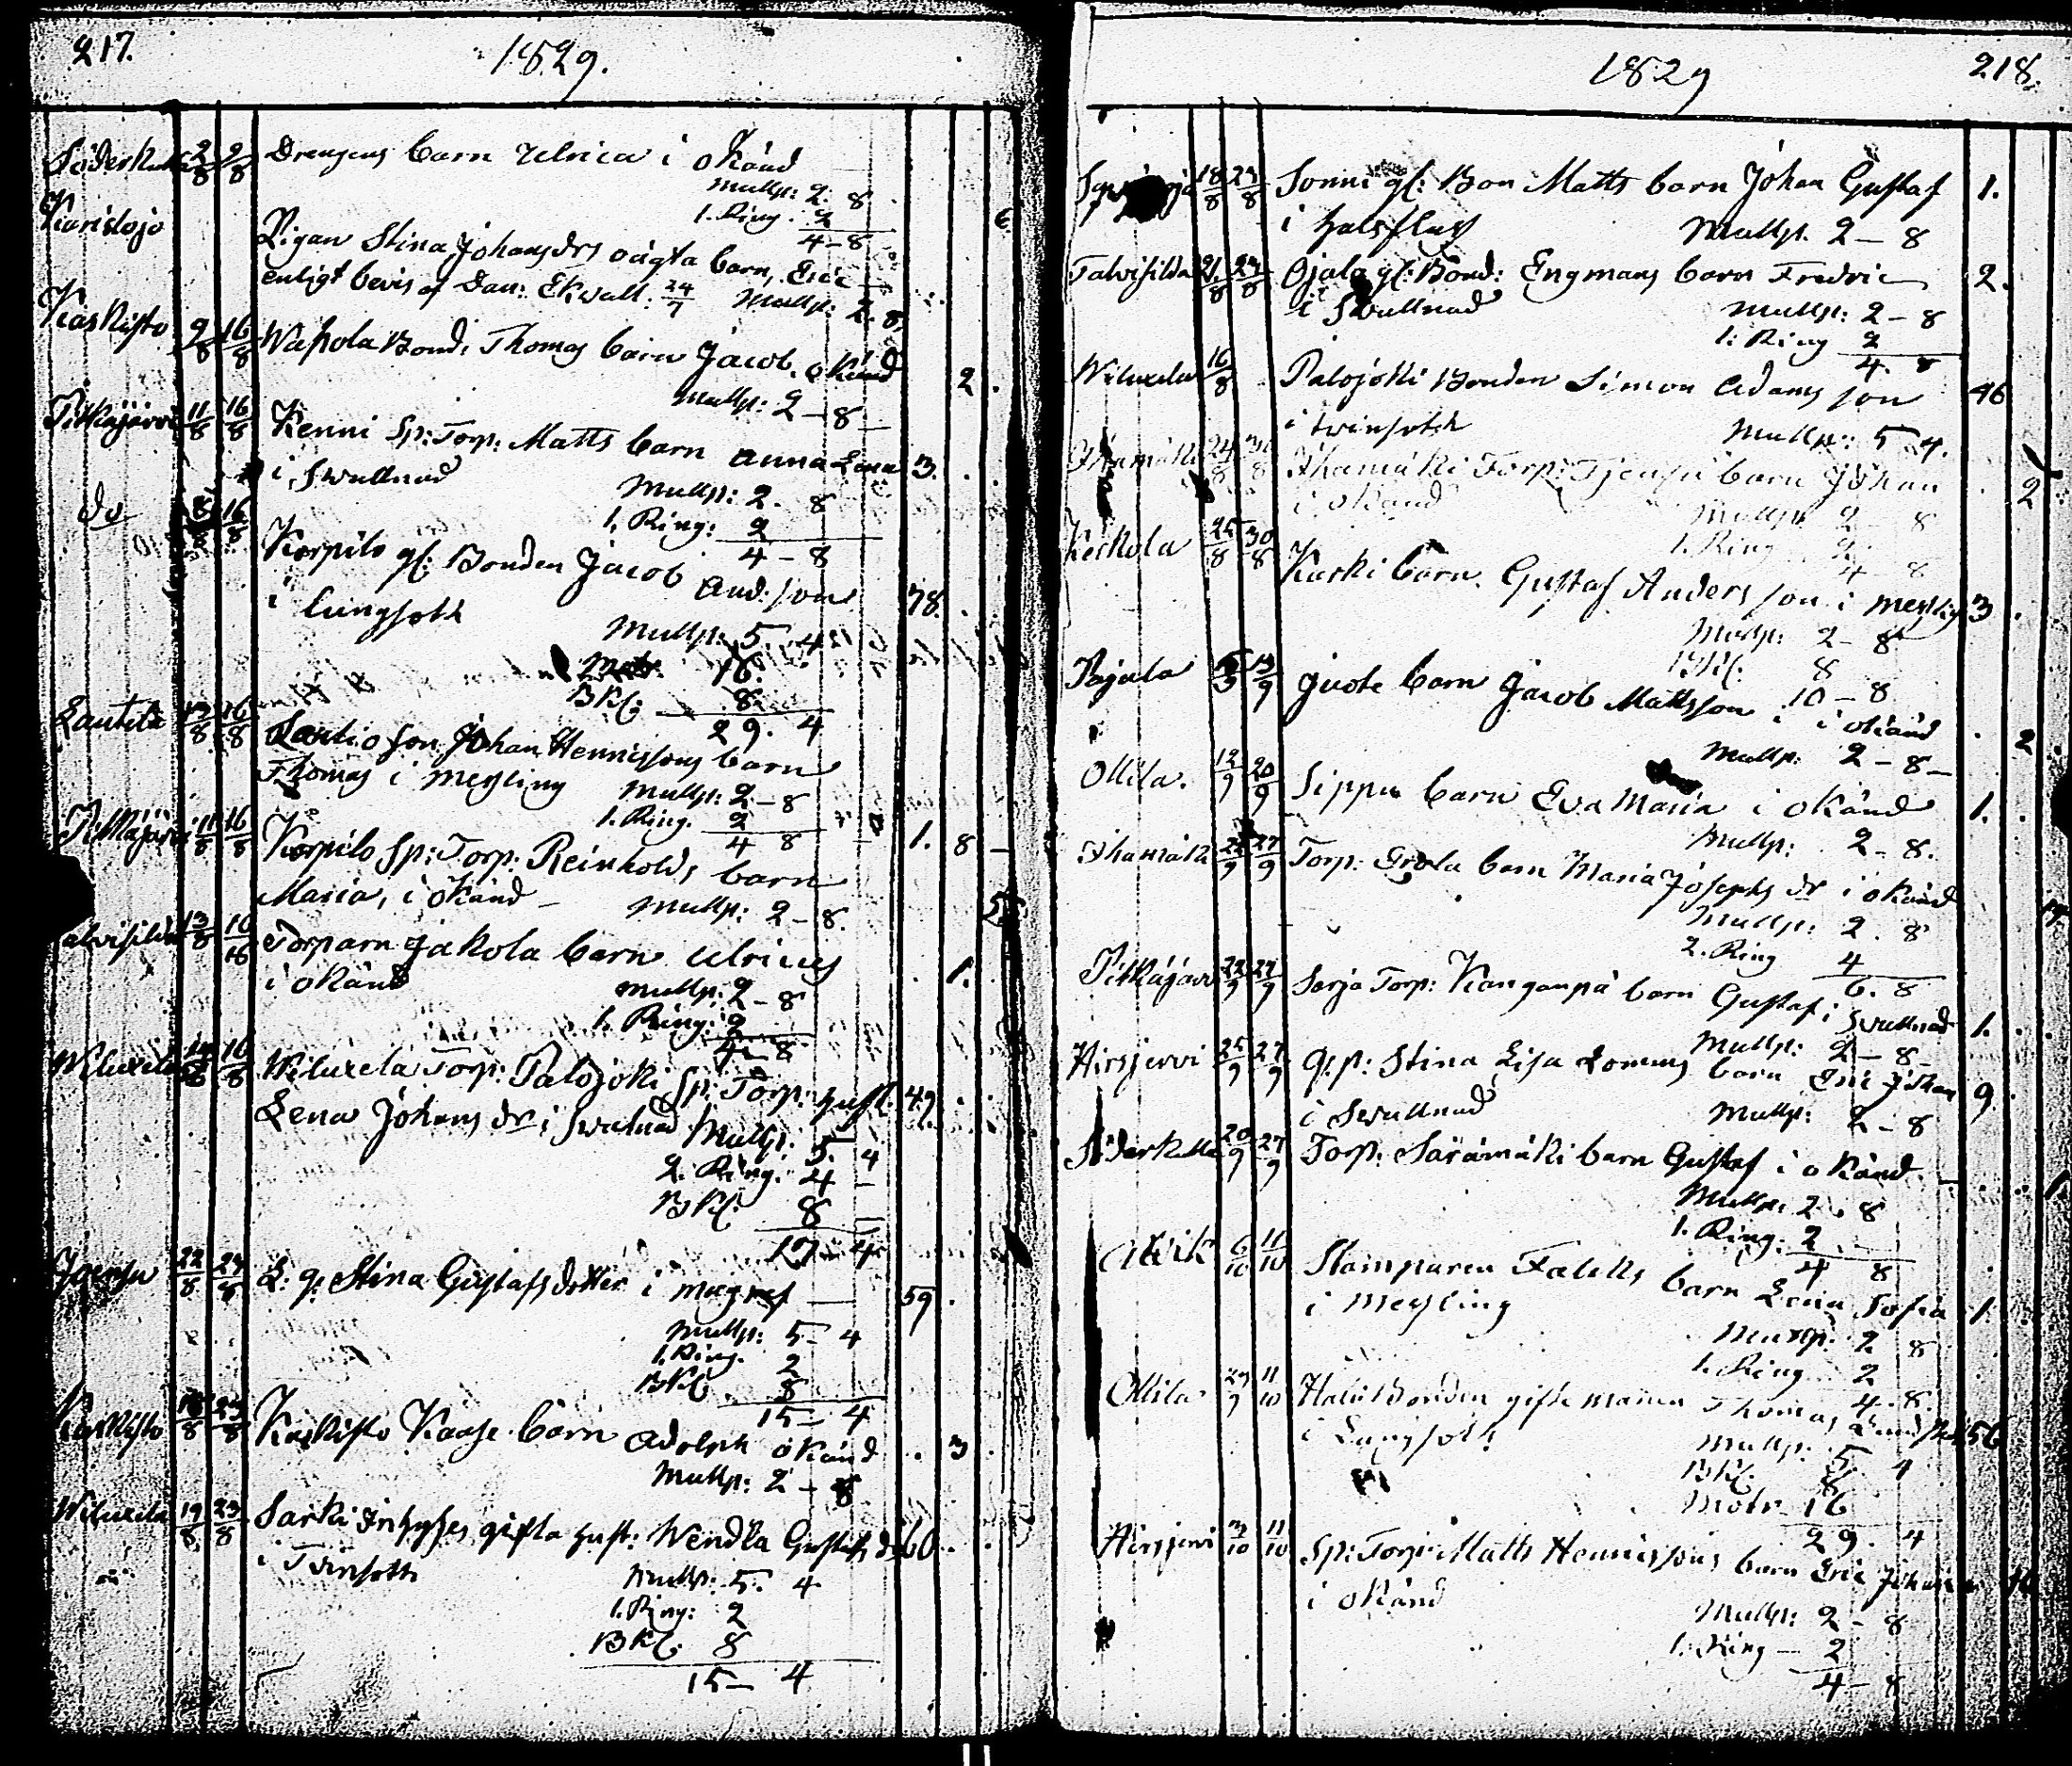 217.
1829.
Söderkulla 2/8 9/8 Drengens barn Ulrica i okänd
Mullp: 2. 8
1. Ring. 2
4 - 8
6
Karislojo
Pigan Stina Johansdrs oägta barn, Eric
enligt bevis af Dan: Ekwall. 24/7 Mullp: 2. 8.
Kaskisto 9/8 16/8 Wahola Bond. Thomas barn Jacob. okänd 2.
Mullp: 2 - 8
Pitkäjärvi 11/8 16/8 Kenni Sp: Torp: Matts barn Anna Lena 3.
i Swullnad
Mullp: 2. 8
1. Ring: 2
4 - 8
do 8/8 16/8
Korpilo gl: Bonden Jacob And: son 78.
i lungsoth
Mullp: 5. 4
Motr 16.
BKl: 8.
29. 4
Lautela 13/8 16/8 Lautio son Johan Henrissons barn
Thomas i Meslling Mullp: 2 - 8
1. Ring. 2
4 8 1. 8 -
Pitkäjärvi 11/8 16/8 Korpilo Sp: Torp: Reinholds barn
Maria, i okänd - Mullp: 2 - 8.
13/8 16 Torparn Jakola barn Ulricus 1.
i okänd
Mullp: 2 - 8
1. Ring: 2
4 - 8
Wiluxela 14/8 16/8 Wiluxela Torp: Palojoki Sp: Torp: hust. 49.
Lena Johans dr i Swulnad Mullp: 5. 4
2. Ring: 4 -
BKl: 8
17 - 4
22/8 23/8 L: q: Stina Gustafsdotter i magref 59.
Mullp: 5 - 4
1. Ring. 2
BKl. 8
15 - 4
Kaskisto 18/8 23/8 Kaskisto Kaase barn Adolph okänd 3
Mullp: 2 - 8
Wiluxela 19/8 23/8 Sarki Inhyses gifta hust: Wendla Gustafs dr 60.
i Twinsoth
Mullp: 5. 4
1. Ring: 2
BKl. 8
15 - 4
1829
218.
18/8 23/8 Sonni gl: Bon Matts barn Johan Gustaf 1.
i halsfluss Mullp. 2 - 8
Talvisilda 21/8 23/8 Ojala gl: Bond: Engmans barn Fredric 2.
i Swullnad
Mullp: 2 - 8
1: Ring 2
4. 8
Wiluxela 16/8 Palojoki Bonden Simon Adams son 46
i twinsoth
Mullp: 5 4.
Ihamäki 24/8 30/8 Ihamäki Torp: barn Johan 2
i okänd
Mullp 2 8
1. Ring 2
4 8
Kerkola 25/8 30/8 Karki barn Gustaf Anders son i Messling 3
Mullp: 2 - 8
BKl: 8
10 - 8
Pajula 13/9 Juote barn Jacob Mattsson i okänd 2
Mullp: 2 - 8 -
Ollila. 12/9 20/9 Sippu barn Eva Maria i okänd 1.
Mullp: 2 - 8.
Ihamäki 22/9 27/9 Torp: barn Maria Josephs dr i okänd
Mullp: 2. 8
2. Ring 4
6. 8
Pitkäjärvi 22/9 27/9 Sarja Torp: Kanganpä barn Gustaf i Swullnad 1.
Mullp: 2 - 8 -
Hirsjervi 25/9 27/9 Q:p: Stina Lisa Lomens barn Eric Johan 9
i Swullnad
Mullp: 2 - 8
Söderkulla 20/9 27/9 Torp: Särämäki barn Gustaf i okänd.
Mullp: 2. 8
1. Ring: 2
4 8
6/10 11/10 Stamparen Falells barn Lena Sofia 1.
i Messling
Mullp: 2 8
1. Ring 2
4. 8.
Ollila 29/9 11/10 Bonden gifte mannen Thomas 56
i Lungsoth
Mullp. 5. 4
BKl. 8
Motr. 16
29. 4
Hirsjervi 11/10 Sp: Torp: Matts Henrissons barn Eric Johan
i okänd
Mullp: 2 - 8
1. Ring - 2
4 - 8